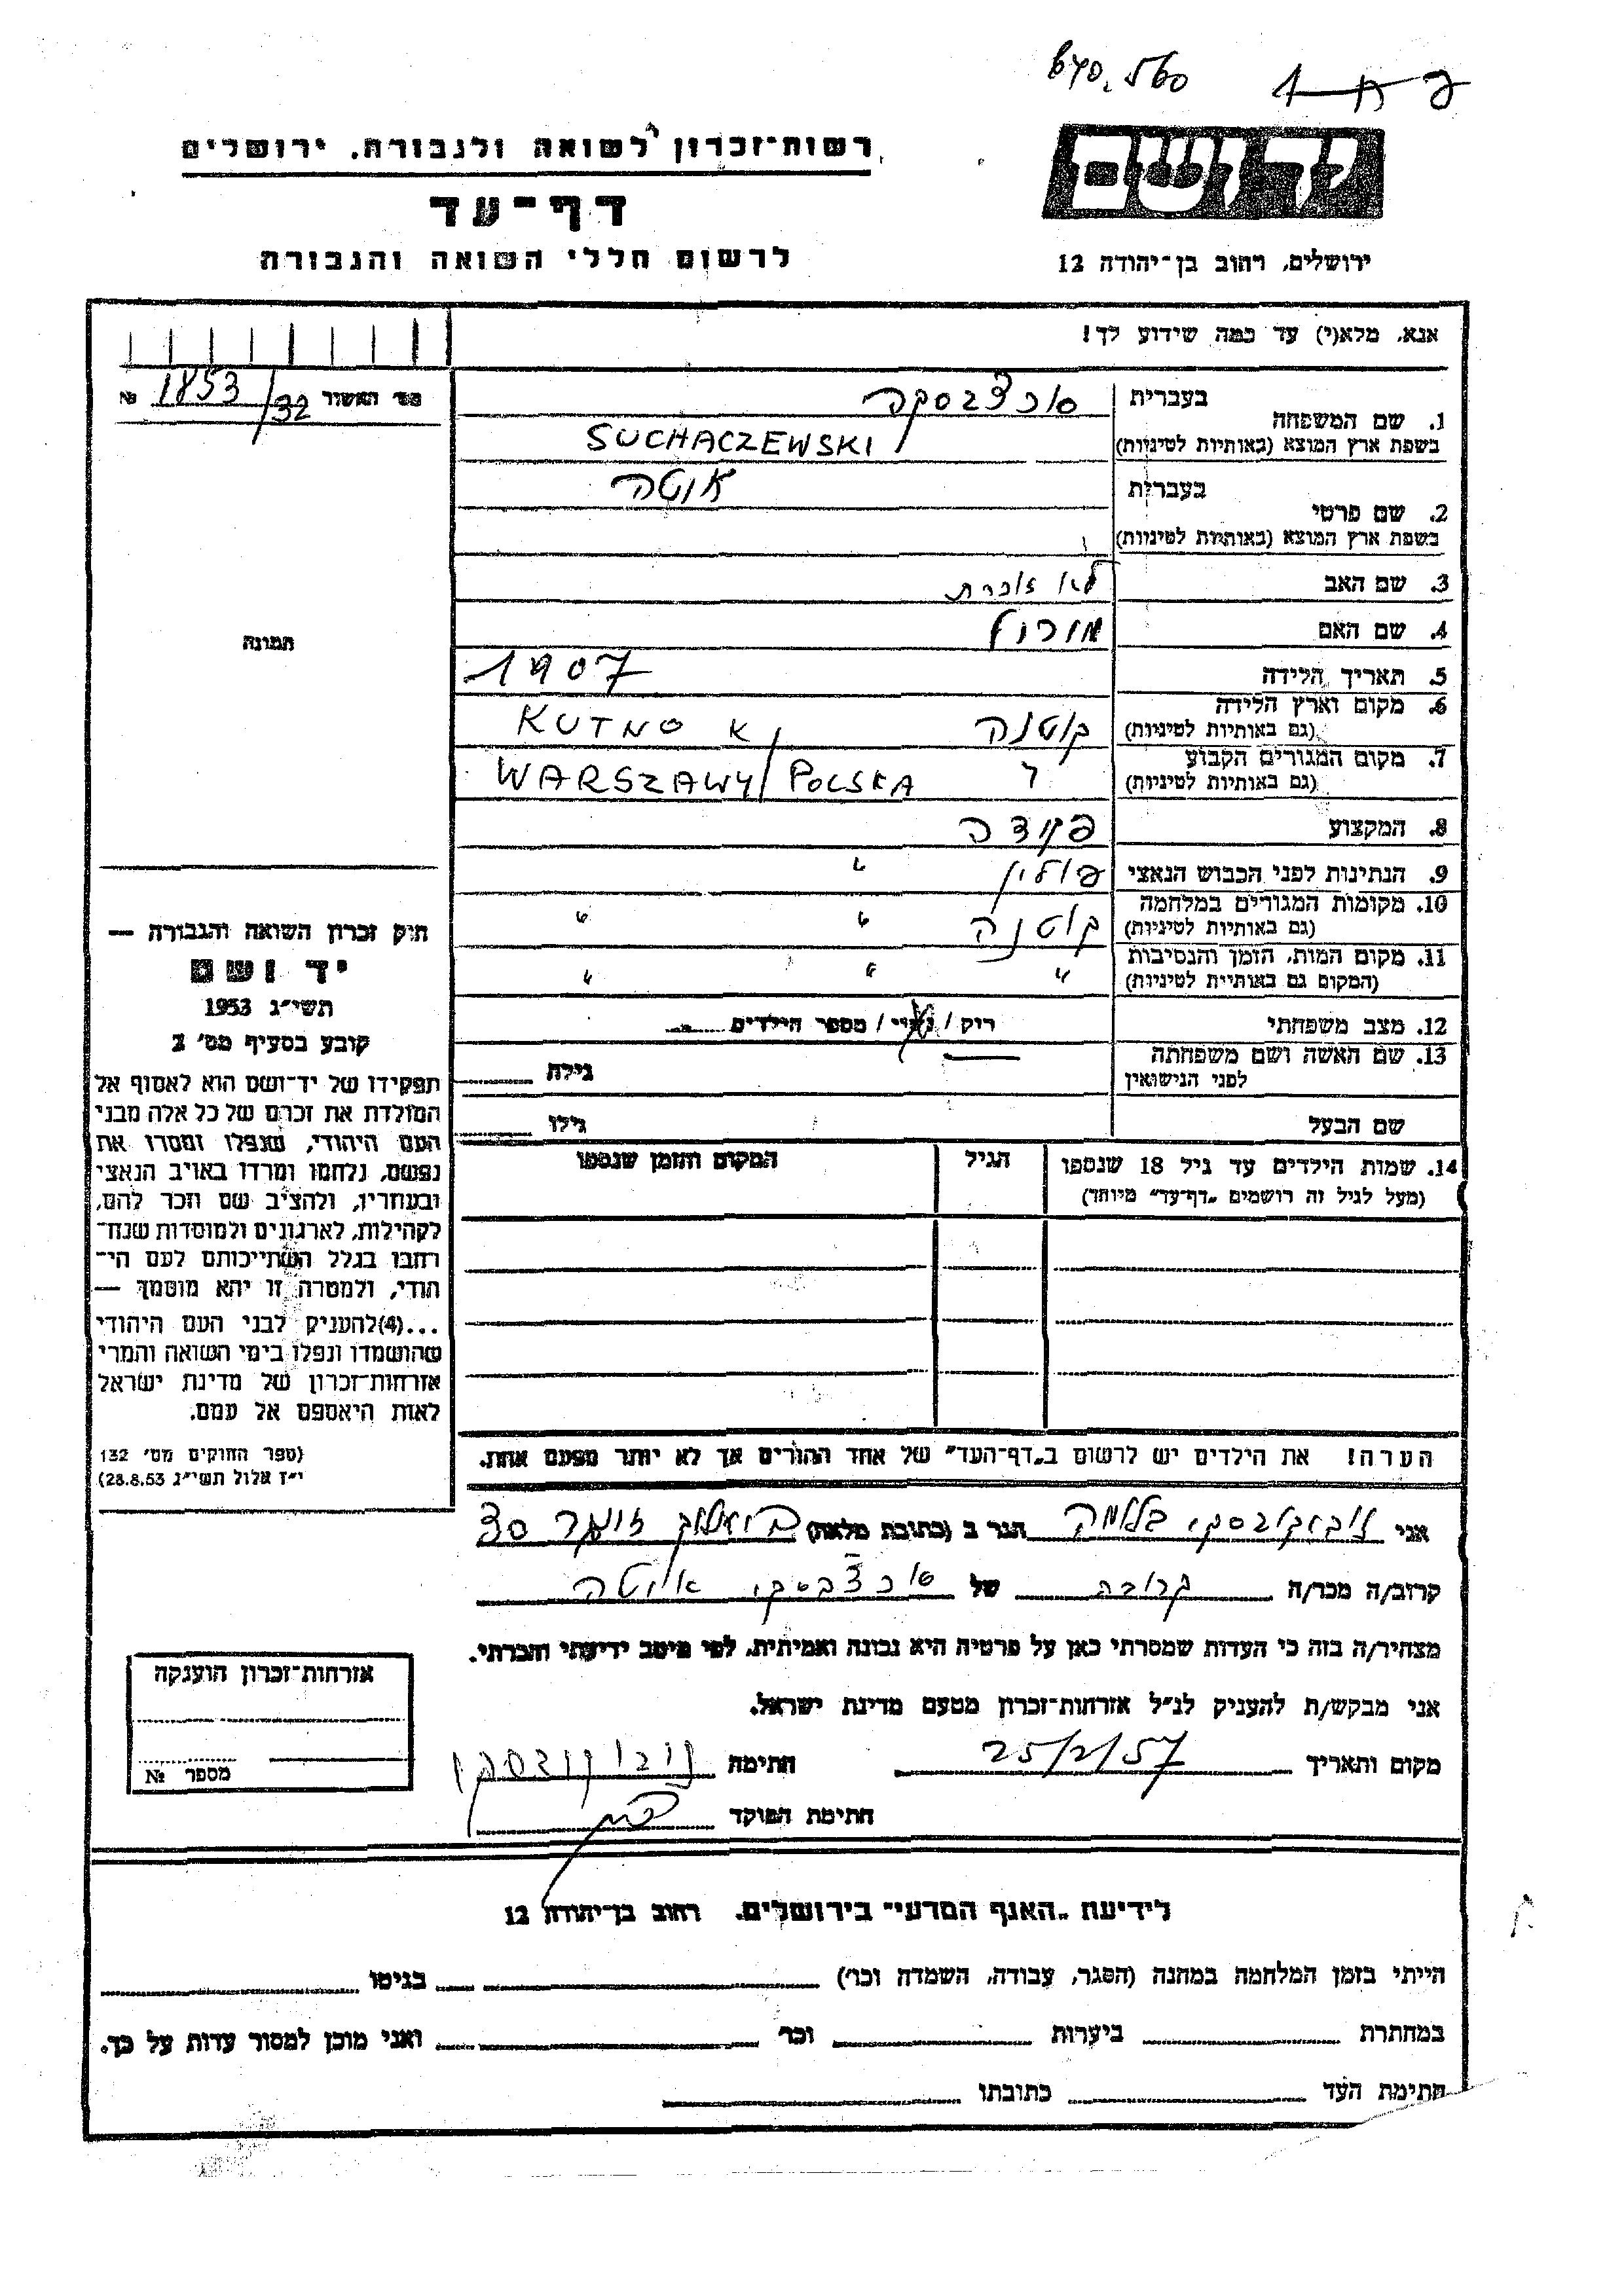 ידושם
ירושלים, רחוב בן־יהודה 12
רשות־זכרון לשואה ולגבורה, ירושלים
דף־עד
לרשום חללי השואה והגבורה
אנא, מלא(י) עד כמה שידוע לך!
מס' האשור 1853/32 №
1. שם המשפחה בעברית סוכצבסקה
בשפת ארץ המוצא (באותיות לטיניות) SUCHACZEWSKI
2. שם פרטי בעברית אוטה
בשפת ארץ המוצא (באותיות לטיניות)
3. שם האב לא זוכרת
4. שם האם
5. תאריך הלידה 1907
6. מקום וארץ הלידה (גם באותיות לטיניות) קוטנה KUTNO K/
7. מקום המגורים הקבוע (גם באותיות לטיניות) WARSZAWY/POLSKA
8. המקצוע פקידה
9. הנתינות לפני הכבוש הנאצי פולין "
10. מקומות המגורים במלחמה (גם באותיות לטיניות) קוטנה " "
11. מקום המות, הזמן והנסיבות (המקום גם באותיית לטיניות) " " "
12. מצב משפחתי רוק/נשוי/מספר הילדים
13. שם האשה ושם משפחתה לפני הנישואין גילה
שם הבעל גילו
14. שמות הילדים עד גיל 18 שנספו הגיל המקום והזמן שנספו
(מעל לגיל זה רושמים „דף־עד" מיוחד)
הערה! את הילדים יש לרשום ב„דף־העד" של אחד ההורים אך לא יותר מפעם אחת.
תמונה
חוק זכרון השואה והגבורה —
יד ושם
תשי"ג 1953
קובע בסעיף מס' 2
תפקידו של יד־ושם הוא לאסוף אל
המולדת את זכרם של כל אלה מבני
העם היהודי, שנפלו ומסרו את
נפשם, נלחמו ומרדו באויב הנאצי
ובעוזריו, ולהציב שם וזכר להם,
לקהילות, לארגונים ולמוסדות שנח־
רחבו בגלל השתייכותם לעם הי־
הודי, ולמטרה זו יהא מוסמך —
...(4)להעניק לבני העם היהודי
שהושמדו ונפלו בימי השואה והמרי
אזרחות־זכרון של מדינת ישראל
לאות היאספם אל עמם.
(ספר החוקים מס' 132
י"ז אלול תשי"ג 28.8.53)
אני הגר ב (כתובת מלאה) 30
קרוב/ה מכר/ה קרובה של סוכצבסקי אוטה
מצהיר/ה בזה כי העדות שמסרתי כאן על פרטיה היא נכונה ואמיתית, לפי מיטב ידיעתי והכרתי.
אני מבקש/ת להעניק לנ"ל אזרחות־זכרון מטעם מדינת ישראל.
מקום ותאריך 25/2/57 חתימה
חתימת הפוקד
אזרחות־זכרון הוענקה
מספר №
לידיעת „האגף המדעי" בירושלים, רחוב בן־יהודה 12
הייתי בזמן המלחמה במחנה (הסגר, עבודה, השמדה וכר') בגיטו
במחתרת ביערות וכר' ואני מוכן למסור עדות על כך.
חתימת העד כתובתו